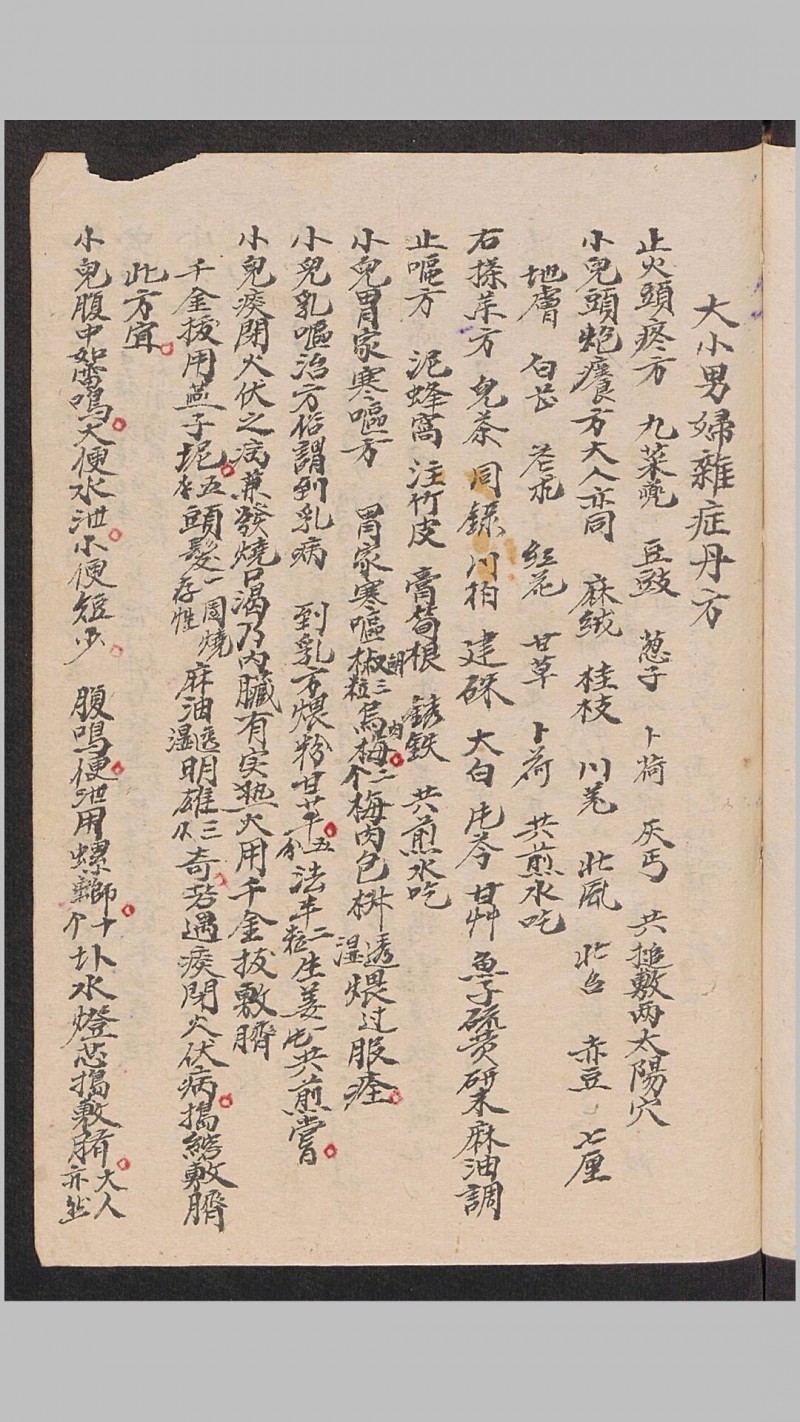 大小男婦雜症丹方
止火頭疼方 九菜蔸 豆豉 葱子 卜荷 灰丐 共搥敷两太陽穴
小兒頭炮癢方大人亦同 麻絨 桂枝 川羌 北風 北台 赤豆 七厘
地膚 白芷 若 紅花 甘草 卜荷 共煎水吃
右搽藥方 兒茶 同錄 川柏 建硃 大白 芩 甘艸 魚子硫黄 研末麻油調
止嘔方 泥蜂窩 注竹皮 膏荀根 銹鉄 共煎水吃
小兒胃家寒嘔方 胃家寒嘔胡椒三粒烏梅肉二个梅肉包椒透湿煨过服痊
小兒乳嘔治方俗謂到乳病 到乳方煨粉甘草五分法半二粒生姜七共煎嘗
小兒痰閉火伏之病兼發燒口渴乃內臟有实熟火用千金拔敷臍
千金拔用燕子坭五頭髮一團燒存性麻油透湿明雄三分奇若遇痰閉火伏病搗餅敷臍
此方宜
小兒腹中如雷鳴大便水泄小便短少 腹鳴便泄用螺螄十个圤水燈芯搗敷臍大人亦然